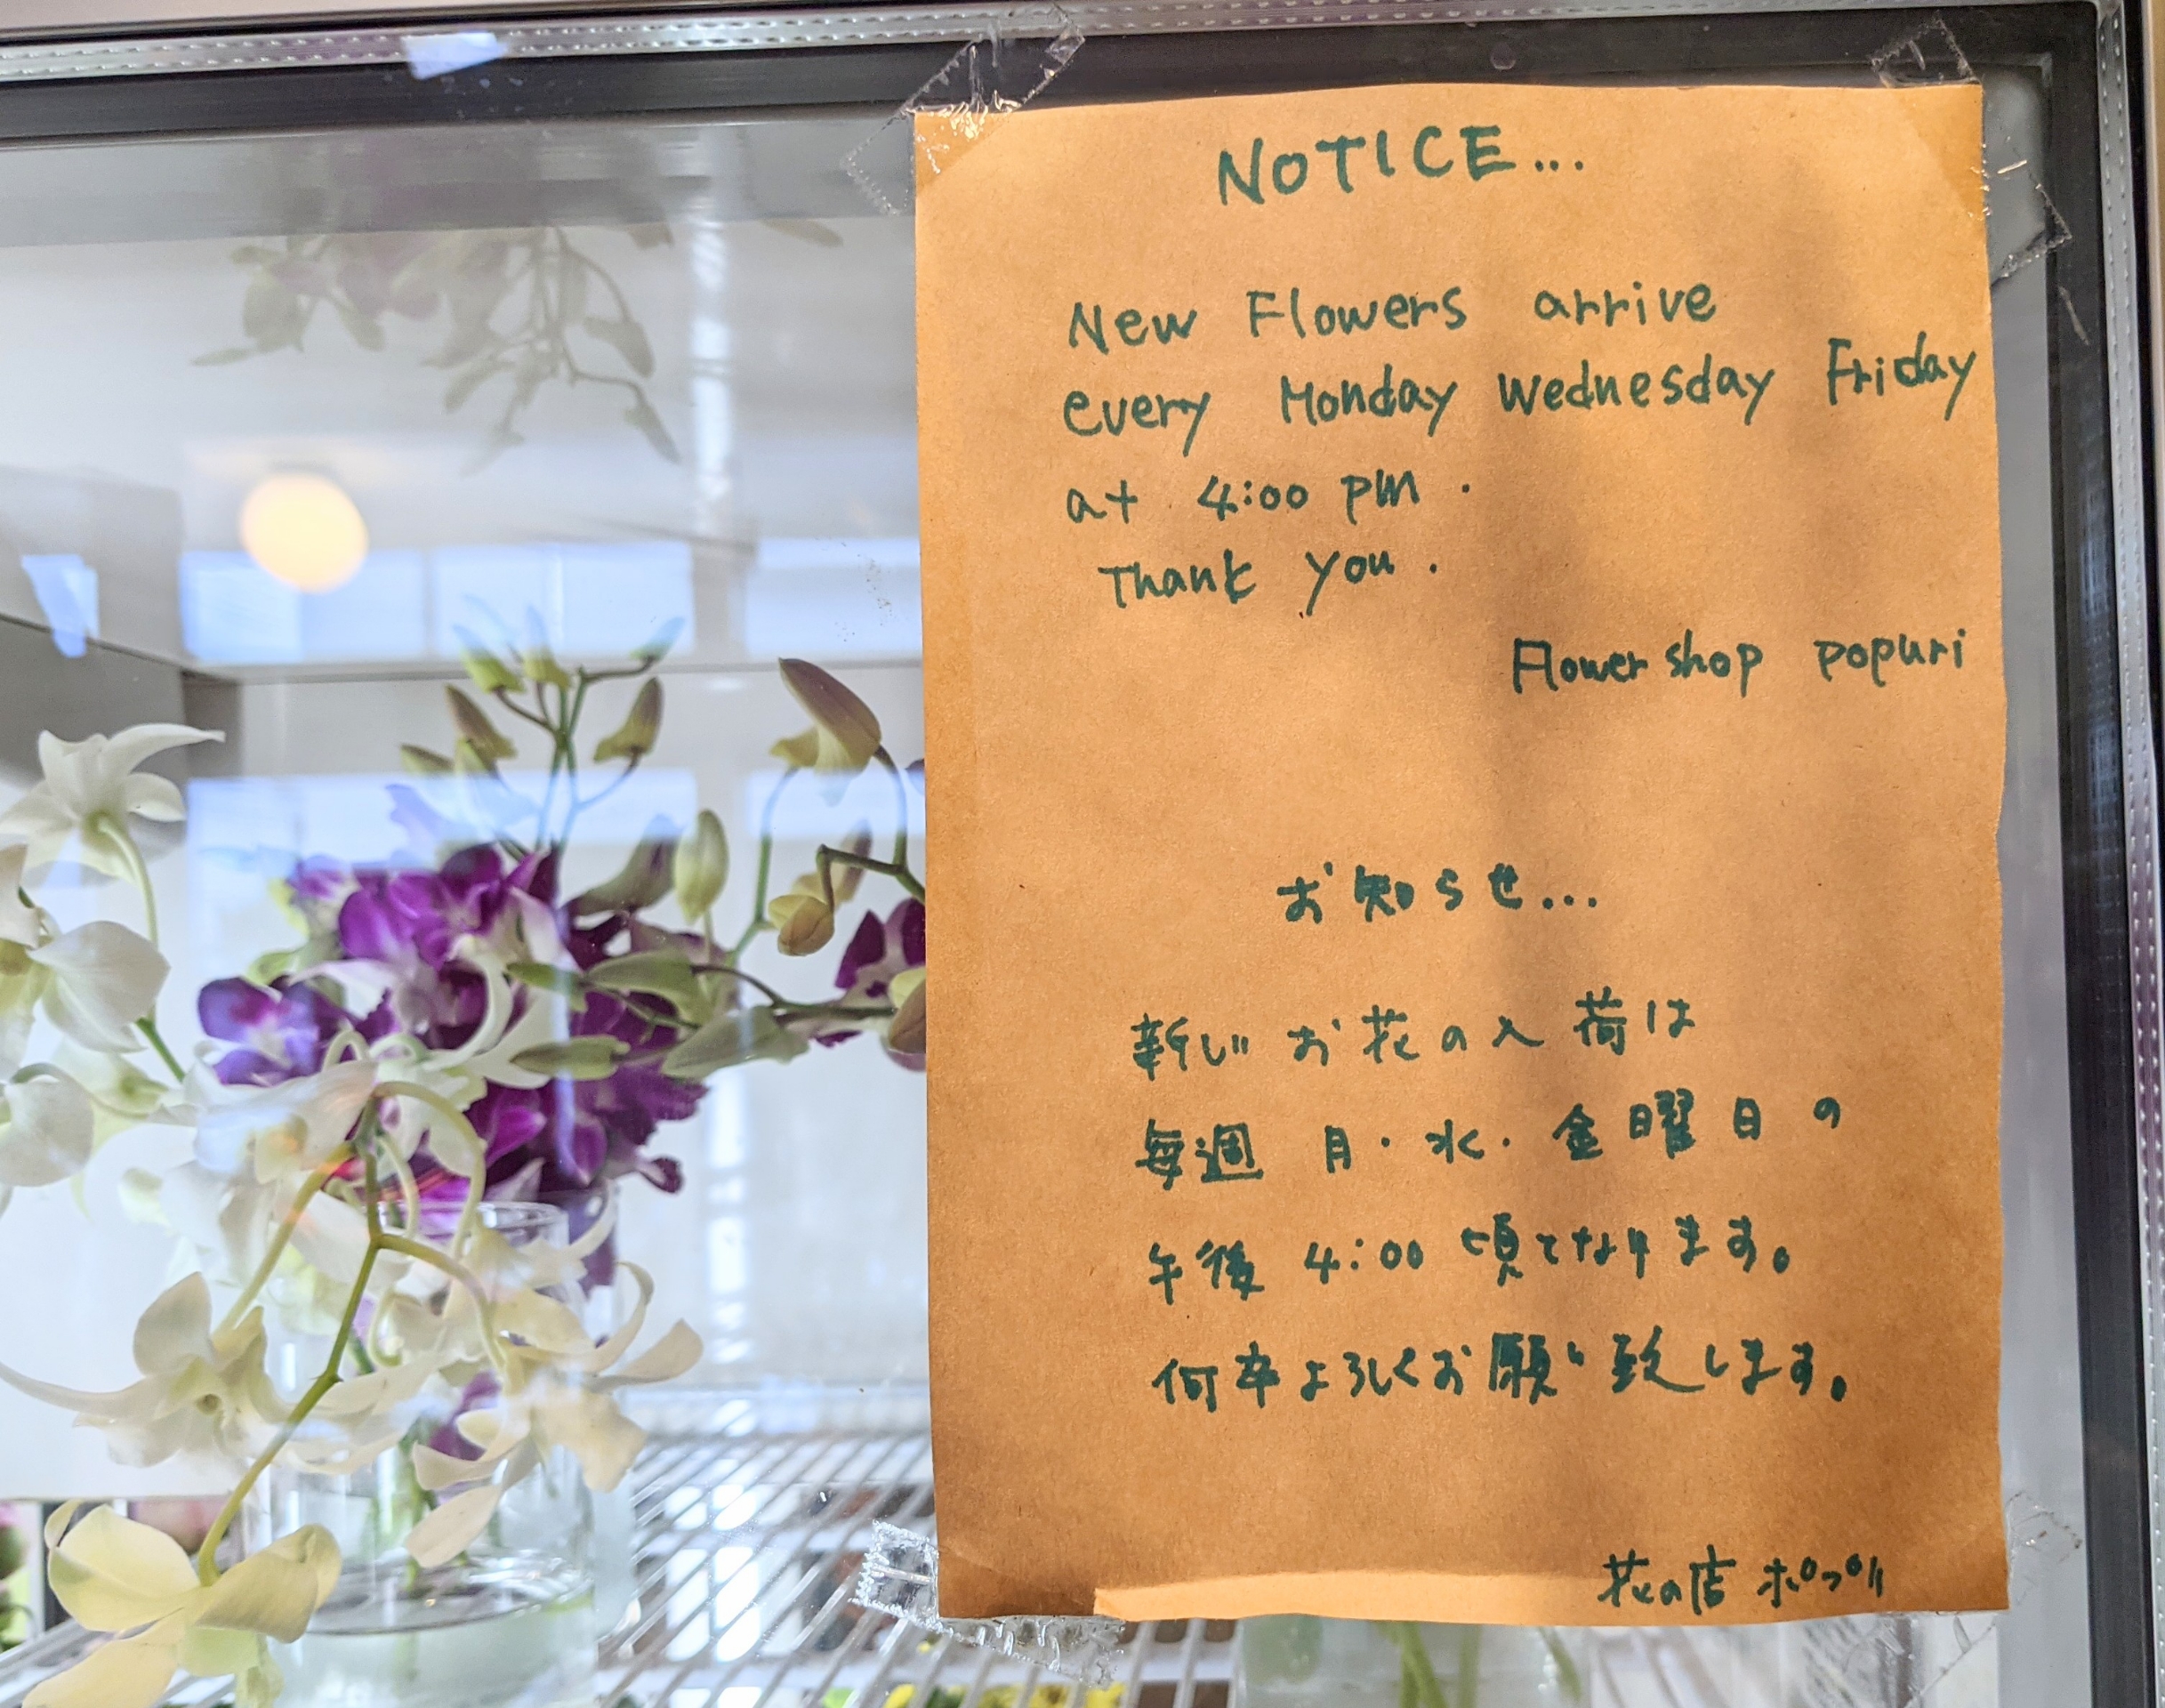 NOTICE...
New Flowers arrive
every Monday Wednesday Friday
at 4:00 pm.
Thank you.
Flower shop popuri
お知らせ...
新しいお花の入荷は
毎週 月・水・金曜日の
午後 4:00 頃となります。
何卒よろしくお願い致します。
花の店 ポプリ